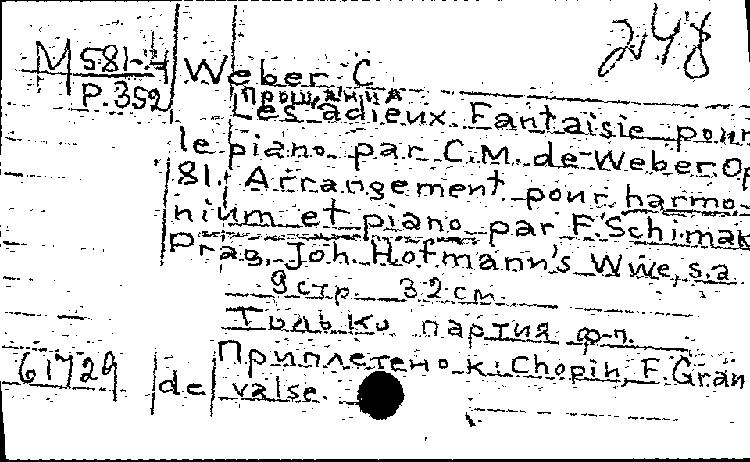 248
М 581-4
P.352
Weber C
прощания
Les adieux. Fantaisie pour
le piano par C.M. de Weber Op
81. Arrangement pour harmo-
nium et piano par F. Schimak
Prag, Joh. Hofmann's Wwe, s.a.
9 стр. 32 см.
Только партия ф-п.
Приплетено к: Chopin, F. Gran
de valse.
61729